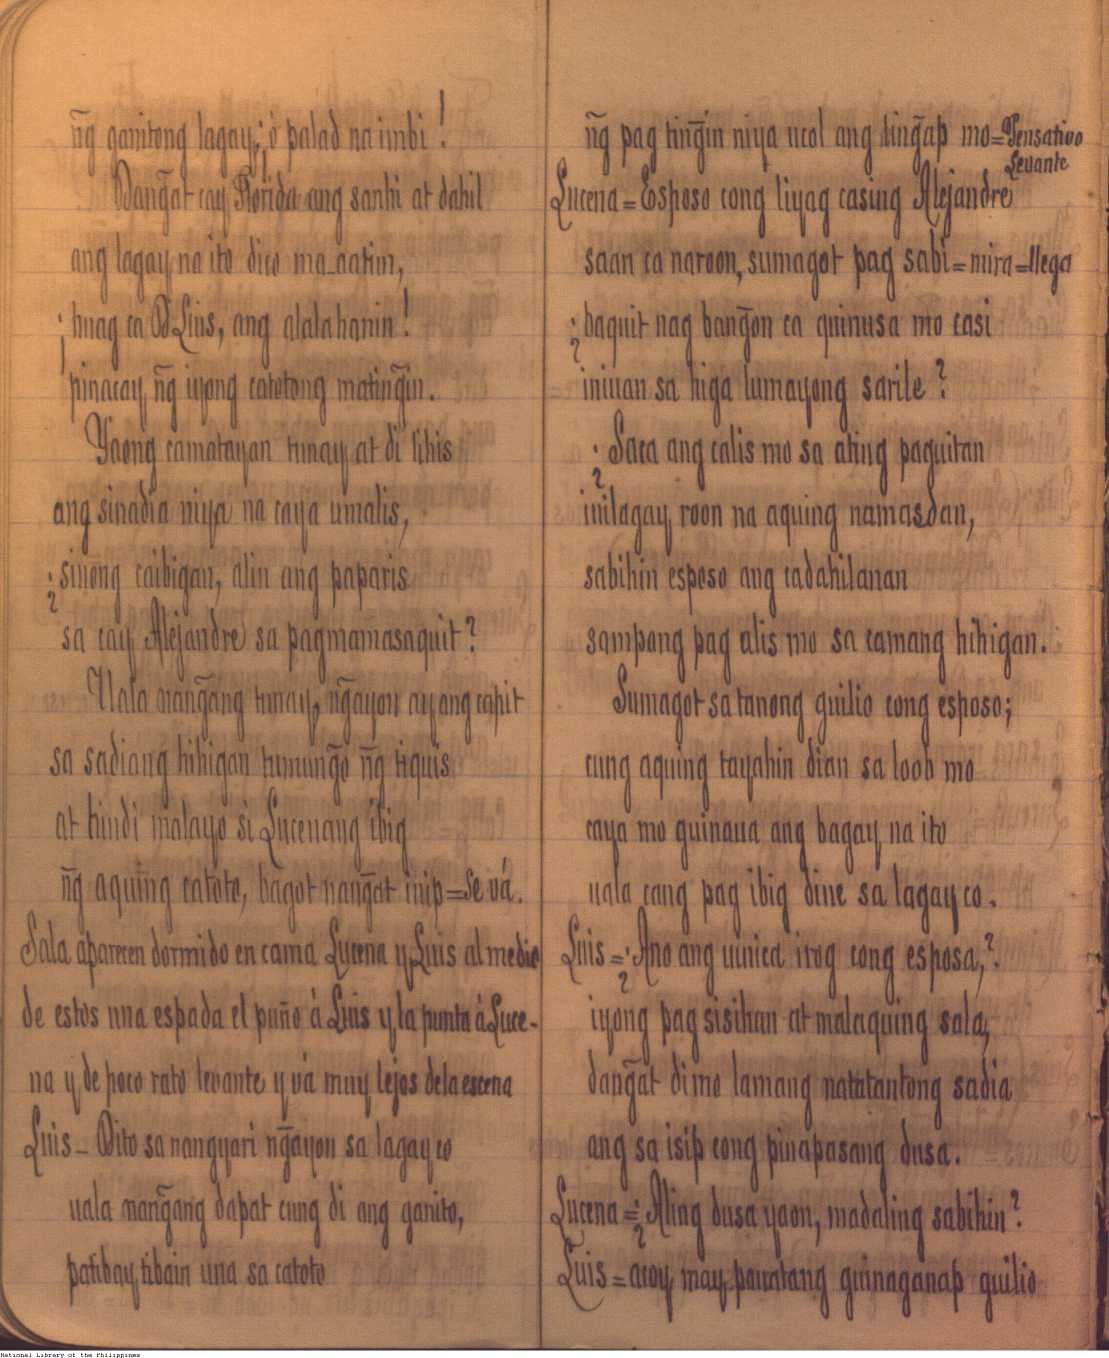 ñg ganitong lagay, ¡ó palad na imbi!
Dang̃at cay Florida ang sanhi at dahil
ang lagay na ito dico ma-aatim,
¡huag ca D Luis, ang alalahanin!
pinacay ñg iyong catotong mating̃in.
Yaong camatayan tunay at di lihis
ang sinadia niya na caya umalis,
¿sinong caibigan, alin ang paparis
sa cay Alejandre sa pagmamasaquit?
Uala nang̃ang tunay, ng̃ayon ay ang capit
sa sadiang hihigan tumung̃o ñg tiquis
at hindi malayo si Lucenang ibig
ñg aquing catoto, bagot nang̃at inip=Se vá.
Sala aparecen dormido en cama Lucena y Luis al medio
de estos una espada el puño á Luis y la punta á Luce-
na y de poco rato levante y vá muy lejos de la escena
Luis- Dito sa nangyari ng̃ayon sa lagay co
uala nang̃ang dapat cung di ang ganito,
patibay tibain una sa catoto
ñg pag ting̃in niya ucol ang ling̃ap mo=Pensativo
Levante
Lucena=Esposo cong liyag casing Alejandre
saan ca naroon, sumagot pag sabi=mira=llega
¿baquit nag bang̃on ca quinusa mo casi
iniuan sa higa lumayong sarile?
¿Saca ang calis mo sa ating paguitan
inilagay roon na aquing namasdan,
sabihin esposo ang cadahilanan
sampong pag alis mo sa camang hihigan.
Sumagot sa tanong guilio cong esposo;
cung aquing tayahin dian sa loob mo
caya mo guinaua ang bagay na ito
uala cang pag ibig dine sa lagay co.
Luis=¿Ano ang uinica irog cong esposa,?
iyong pag sisihan at malaquing sala,
dang̃at di mo lamang natatantong sadia
ang sa isip cong pinapasang dusa.
Lucena=¿Aling dusa yaon, madaling sabihin?
Luis=acoy may panatang guinaganap guilio
National Library of the Philippines